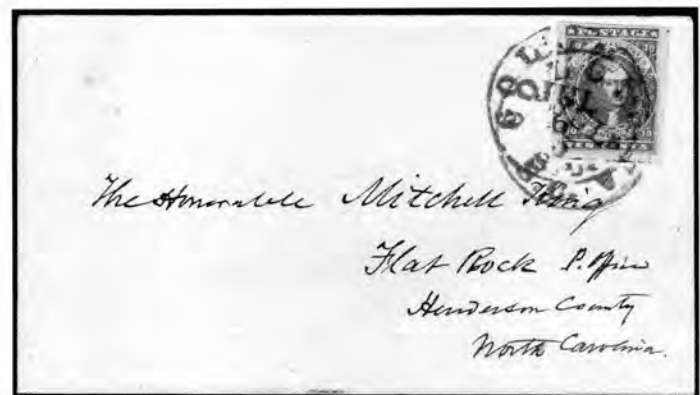 POSTAGE
The Honorable Mitchell King
Flat Rock P. Office
Henderson County
North Carolina.